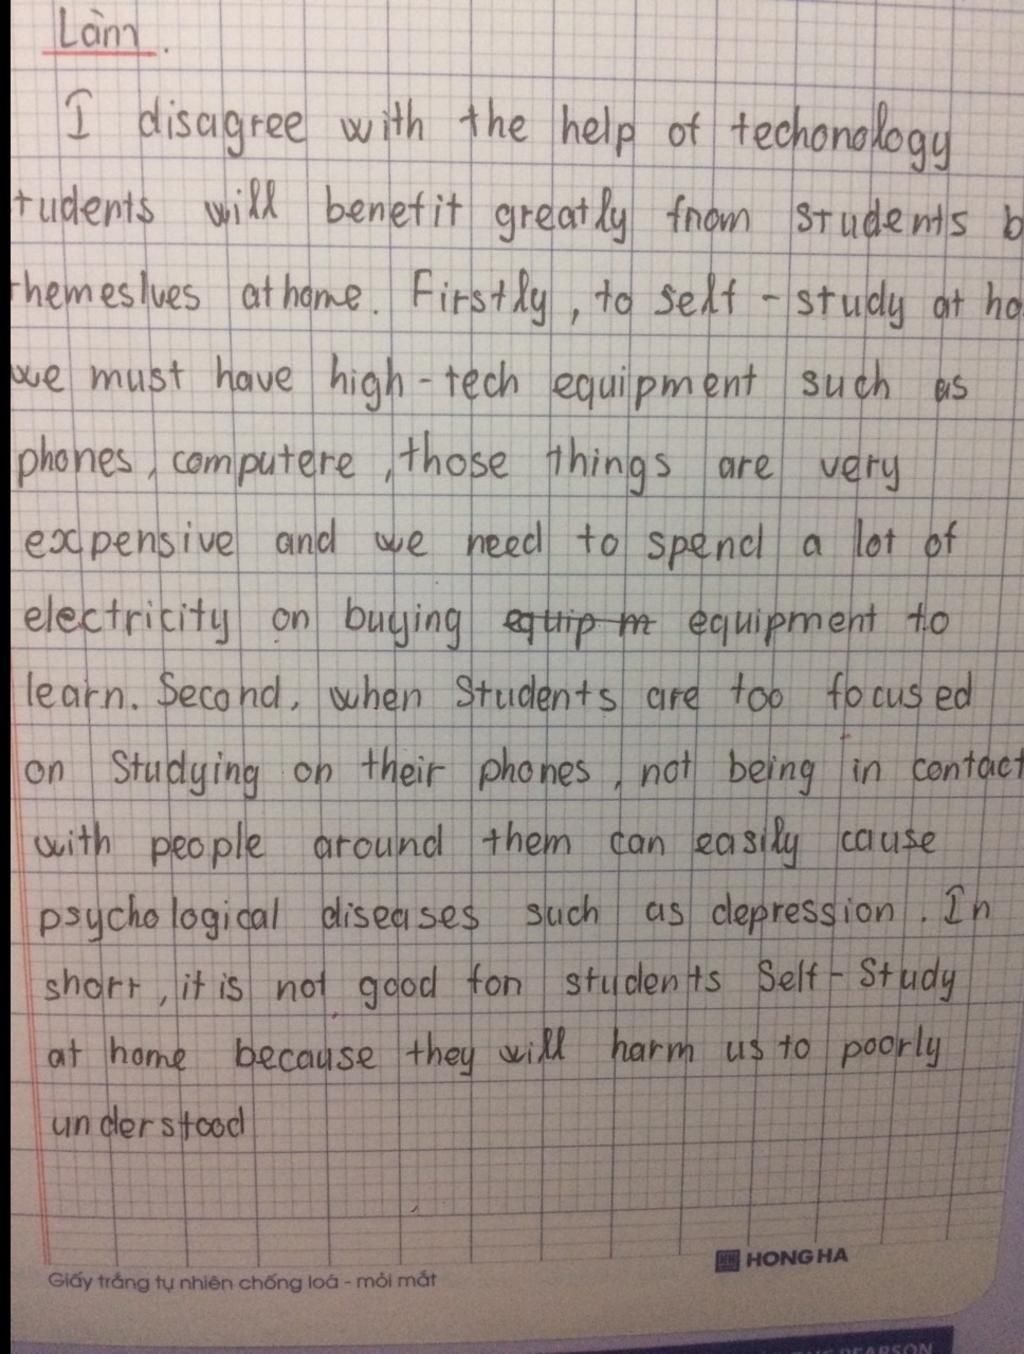 Làm.
I disagree with the help of techonology
tudents will benefit greatly from students b
themeslves at home. Firstly, to self-study at ho
we must have high-tech equipment such as
phones, computere, those things are very
expensive and we need to spend a lot of
electricity on buying equip m equipment to
learn. Second, when Students are too focused
on Studying on their phones, not being in contact
with people around them can easily cause
psychological diseases such as depression. In
short, it is not good for students Self-Study
at home because they will harm us to poorly
understood
HONG HA
Giấy trắng tự nhiên chống loá - mỏi mắt
PEARSON